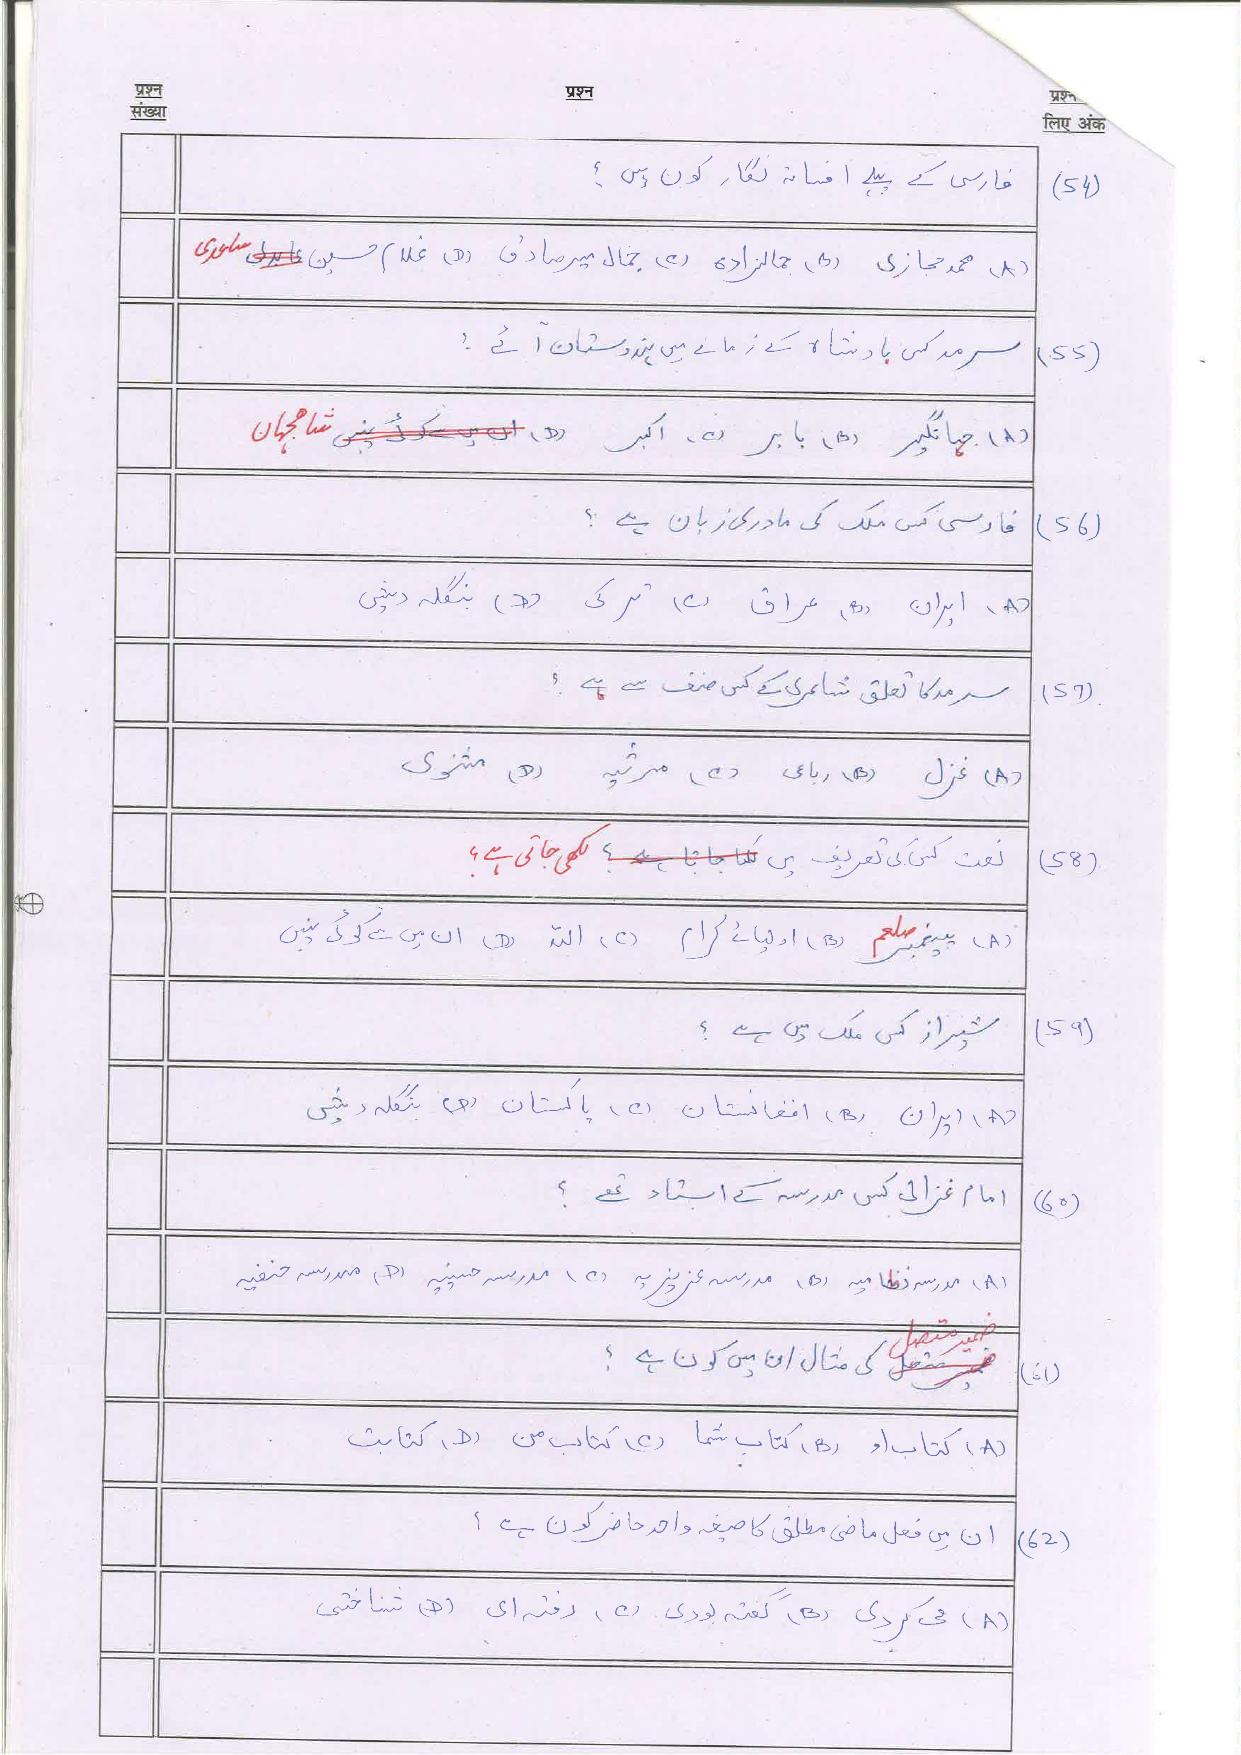 प्रश्न संख्या
प्रश्न
प्रश्न
लिए अंक
(54) فارسی کے پہلے افسانہ نگار کون ہیں ؟
(A) محمد حجازی (B) جمالزادہ (C) جمال میر صادقی (D) غلام حسین ساعدی
(55) سرمد کس بادشاہ کے زمانے میں ہندوستان آئے ؟
(A) جہانگیر (B) بابر (C) اکبر (D) ان میں سے کوئی نہیں شاہجہاں
(56) فارسی کس ملک کی مادری زبان ہے ؟
(A) ایران (B) عراق (C) ترکی (D) بنگلہ دیش
(57) سرمد کا تعلق شاعری کے کس صنف سے ہے ؟
(A) غزل (B) رباعی (C) مرثیہ (D) مثنوی
(58) نعت کس کی تعریف میں لکھا جاتا ہے ؟ لکھی جاتی ہے ؟
(A) پیغمبر صلعم (B) اولیائے کرام (C) اللہ (D) ان میں سے کوئی نہیں
(59) شیراز کس ملک میں ہے ؟
(A) ایران (B) افغانستان (C) پاکستان (D) بنگلہ دیش
(60) امام غزالی کس مدرسہ کے استاد تھے ؟
(A) مدرسہ نظامیہ (B) مدرسہ عزیزیہ (C) مدرسہ حسینیہ (D) مدرسہ حنفیہ
(61) ضمیر متصل کی مثال ان میں کون ہے ؟
(A) کتاب او (B) کتاب شما (C) کتاب من (D) کتابت
(62) ان میں فعل ماضی مطلق کا صیغہ واحد حاضر کون ہے ؟
(A) می کردی (B) گفتہ بودی (C) رفتہ ای (D) شناختی